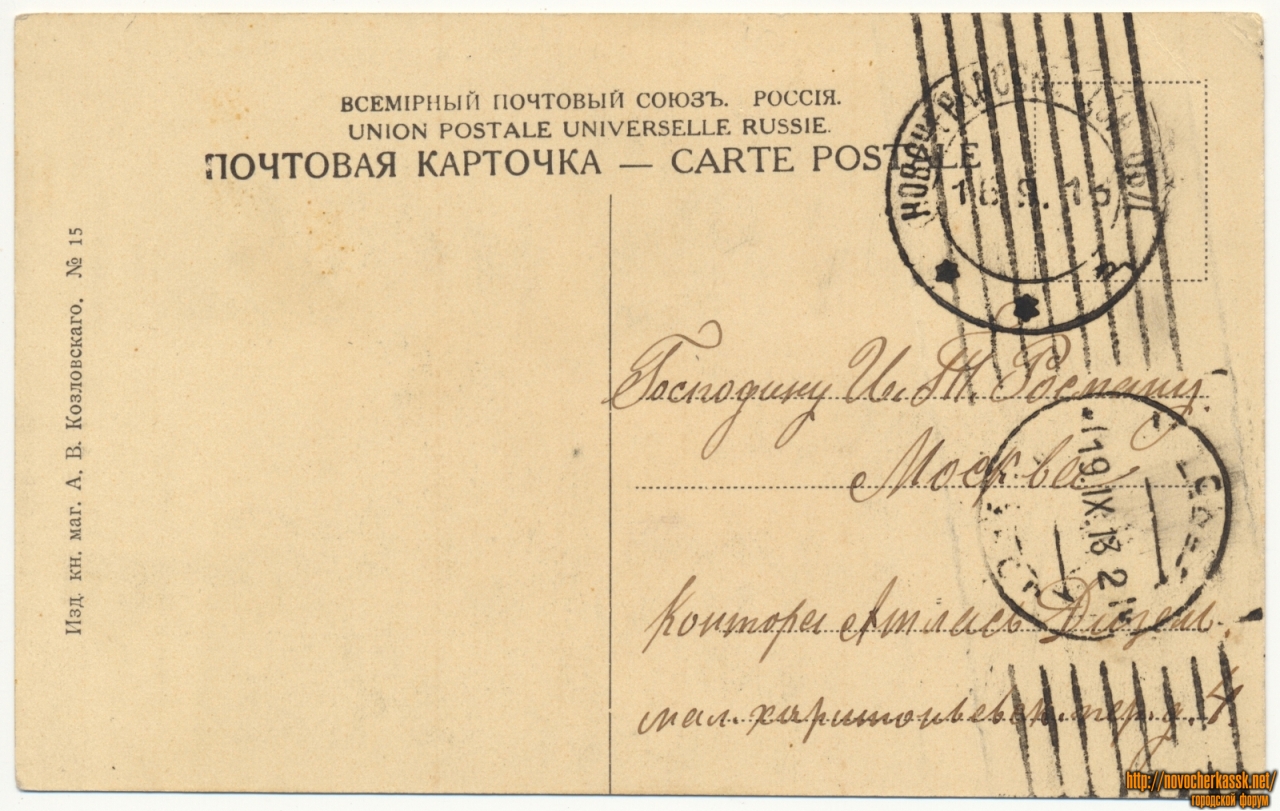 ВСЕМІРНЫЙ ПОЧТОВЫЙ СОЮЗЪ. РОССІЯ.
UNION POSTALE UNIVERSELLE RUSSIE.
ПОЧТОВАЯ КАРТОЧКА — CARTE POSTALE
НОВОЧЕРКАССКЪ ОБЛ
18.9.13
Изд. кн. маг. А. В. Козловскаго. № 15
Господину И. Т. Росману.
Москва
19.IX.13
Контора Атласъ Дизель.
мал. харитоньевск. пер. д. 4
http://novocherkassk.net/
городской форум